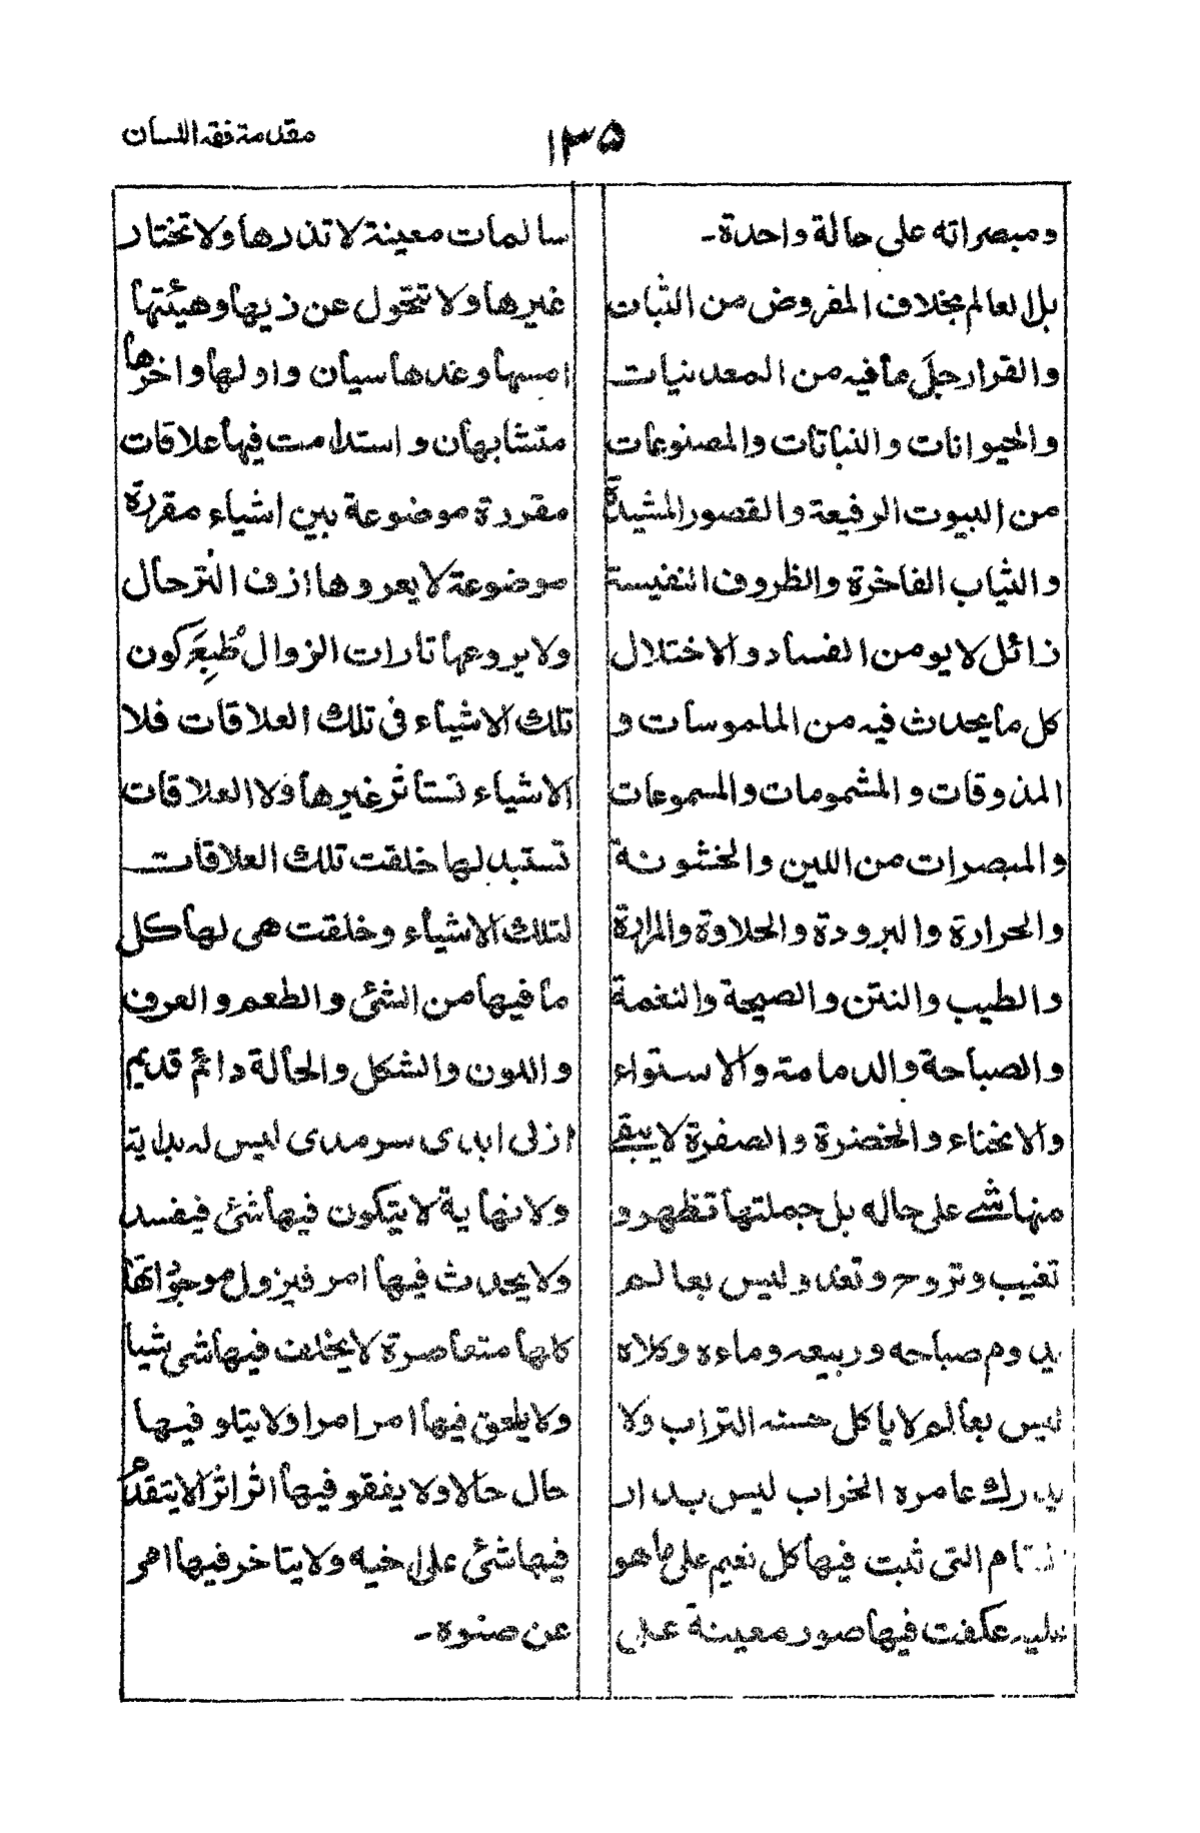 مقدمة فقه اللسان
١٣٥
ومبصراته على حالة واحدة۔
بل العالم بخلاف المفروض من الثبات
والقرار جلَ ما فيه من المعدنيات
والحيوانات والنباتات والمصنوعات
من البيوت الرفيعة والقصور المشيدة
والثياب الفاخرة والظروف النفيسة
زائل لا يومن الفساد والاختلال
كل ما يحدث فيه من الملموسات و
المذوقات والمشمومات والمسموعات
والمبصرات من اللين والخشونة
والحرارة والبرودة والحلاوة والمرارة
والطيب والنتن والصيحة والنغمة
والصباحة والدمامة والاستواء
والانحناء والخضرة والصفرة لا يبقى
منها شے على حاله بل جملتها تظهر و
تغيب وتروح وتغدو ليس بعالم
يدوم صباحه وربيعه وماءه وكلاه
ليس بعالم لا يأكل حسنه التراب ولا
يدرك عامره الخراب ليس بدار
التى ثبت فيها كل نعيم على ما هو
عليه عكفت فيها صور معينة على
سالمات معينة لا تذرها ولا تختار
غيرها ولا تتحول عن زيها وهيئتها
امسها وغدها سيان واولها واخرها
متشابهان واستدامت فيها علاقات
مقررة موضوعة بين اشياء مقررة
موضوعة لا يعروها ازف الترحال
ولا يروعها تارات الزوال طُبِعَ كون
تلك الاشياء فى تلك العلاقات فلا
الاشياء تستأثر غيرها ولا العلاقات
تستبدلها خلقت تلك العلاقات
لتلك الاشياء وخلقت هى لها كل
ما فيها من الشئ والطعم والعرف
واللون والشكل والحالة دائم قديم
ازلى ابدى سرمدى ليس له بداية
ولا نهاية لا يتكون فيها شئ فيفسد
ولا يحدث فيها امر فيزول موجوداتها
كلها متعاصرة لا يخلف فيها شى شيا
ولا يلحق فيها امر امرا ولا يتلو فيها
حال حالا ولا يفقو فيها اثر اثرا لا يتقدم
فيها شئ على اخيه ولا يتاخر فيها امر
عن صنوه۔